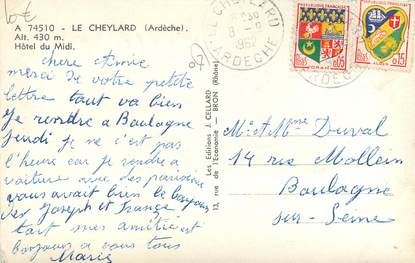 A 74510 - LE CHEYLARD (Ardèche)
Alt. 430 m.
Hôtel du Midi.
LE CHEYLARD
ARDECHE
REPUBLIQUE FRANÇAISE
0,05
0,15
chere
merci de votre petite
lettre tout va bien
Je rendre a Boulogne
Jeudi je ne c'est pas
l'heure car je rendre a
voiture avec des parisien
vous avait bien le bonjour
des Joseph et France
tout mes amitié
bonjour a vous tous
Marie
Les Editions J. CELLARD
13, rue de l'Economie - BRON (Rhône)
Mr et Mme Duval
14 rue Mollien
Boulogne
sur-Seine